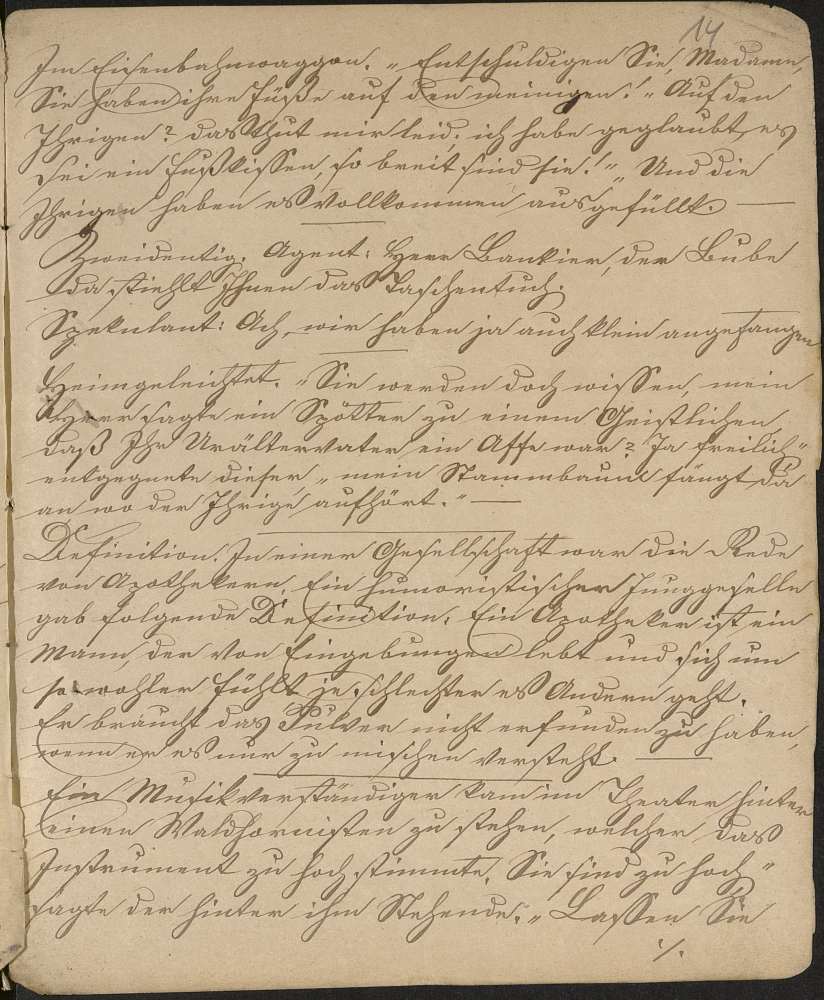 14
Im Eisenbahnwaggon. „Entschuldigen Sie, Madame,
Sie haben ihre Füße auf den meinigen!" „Auf den
Ihrigen? das thut mir leid; ich habe geglaubt, es
sei ein Fußkissen, so breit sind sie!" „Und die
Ihrigen haben es vollkommen ausgefüllt. —
Zweideutig. Agent: Herr Bankier, der Bube
da stiehlt Ihnen das Taschentuch.
Spekulant: Ach, wir haben ja auch klein angefangen
Heimgeleuchtet. „Sie werden doch wissen, mein
Herr sagte ein Spötter zu einem Geistlichen,
daß Ihr Urältervater ein Affe war? „Ja freilich"
entgegnete dieser, „mein Stammbaum fängt da
an wo der Ihrige aufhört." —
Definition. In einer Gesellschaft war die Rede
von Apothekern. Ein humoristischer Junggeselle
gab folgende Definition: Ein Apotheker ist ein
Mann, der von Eingebungen lebt und sich um
so wohler fühlt je schlechter es Andern geht.
Er braucht das Pulver nicht erfunden zu haben,
wenn er es nur zu mischen versteht. —
Ein Musikverständiger kam im Theater hinter
einen Waldhornisten zu stehen, welcher das
Instrument zu hoch stimmte. Sie sind zu hoch"
sagte der hinter ihm Stehende. „Lassen Sie
./.